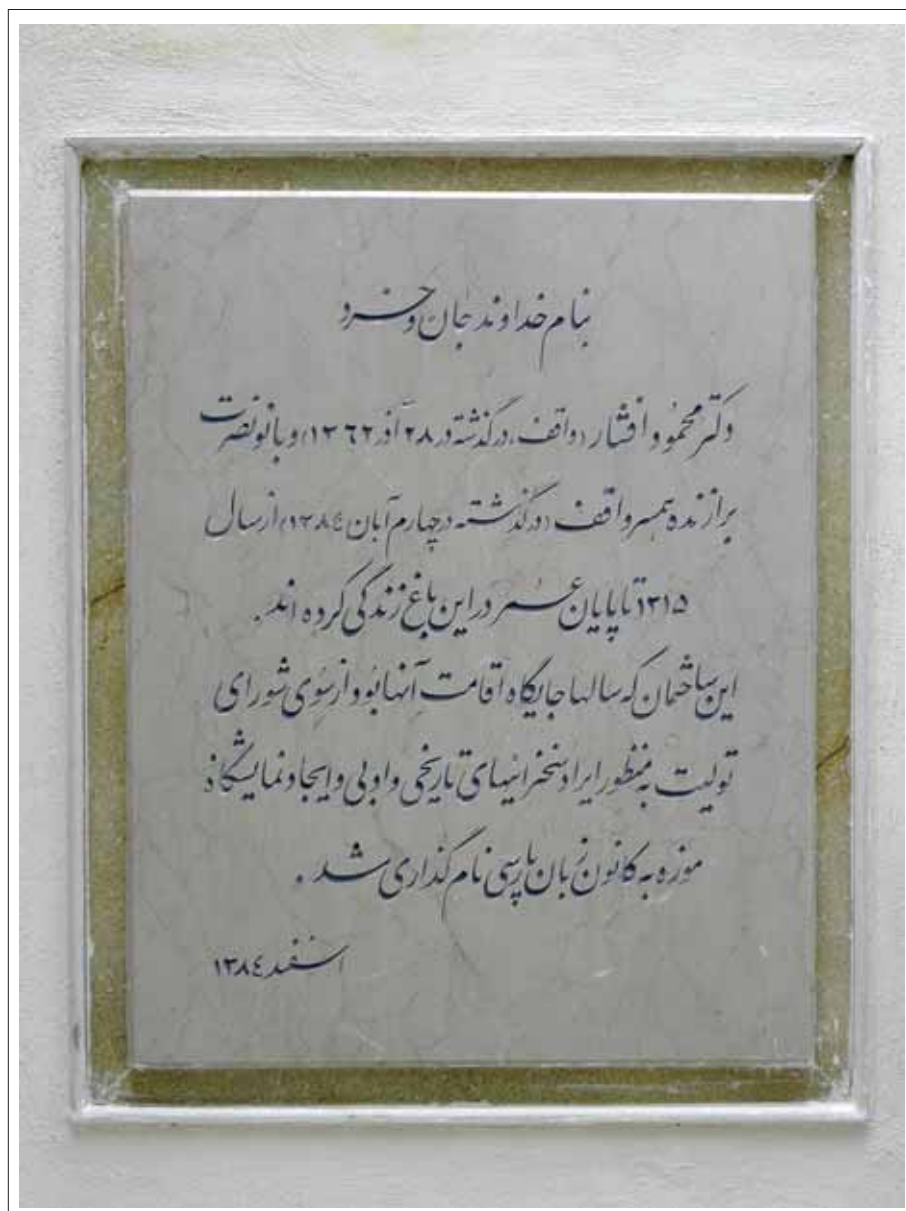 بنام خداوند جان و خرد
دکتر محمود افشار (واقف، درگذشته در ۲۸ آذر ۱۳۶۲) و بانو نصرت
برازنده همسر واقف (درگذشته در چهارم آبان ۱۳۸۴) از سال
۱۳۱۵ تا پایان عمر در این باغ زندگی کرده اند.
این ساختمان که سالها جایگاه اقامت آنها بود از سوی شورای
تولیت به منظور ایراد سخنرانیهای تاریخی و ادبی و ایجاد نمایشگاه
موزه به کانون زبان پارسی نام گذاری شد.
اسفند ۱۳۸۴